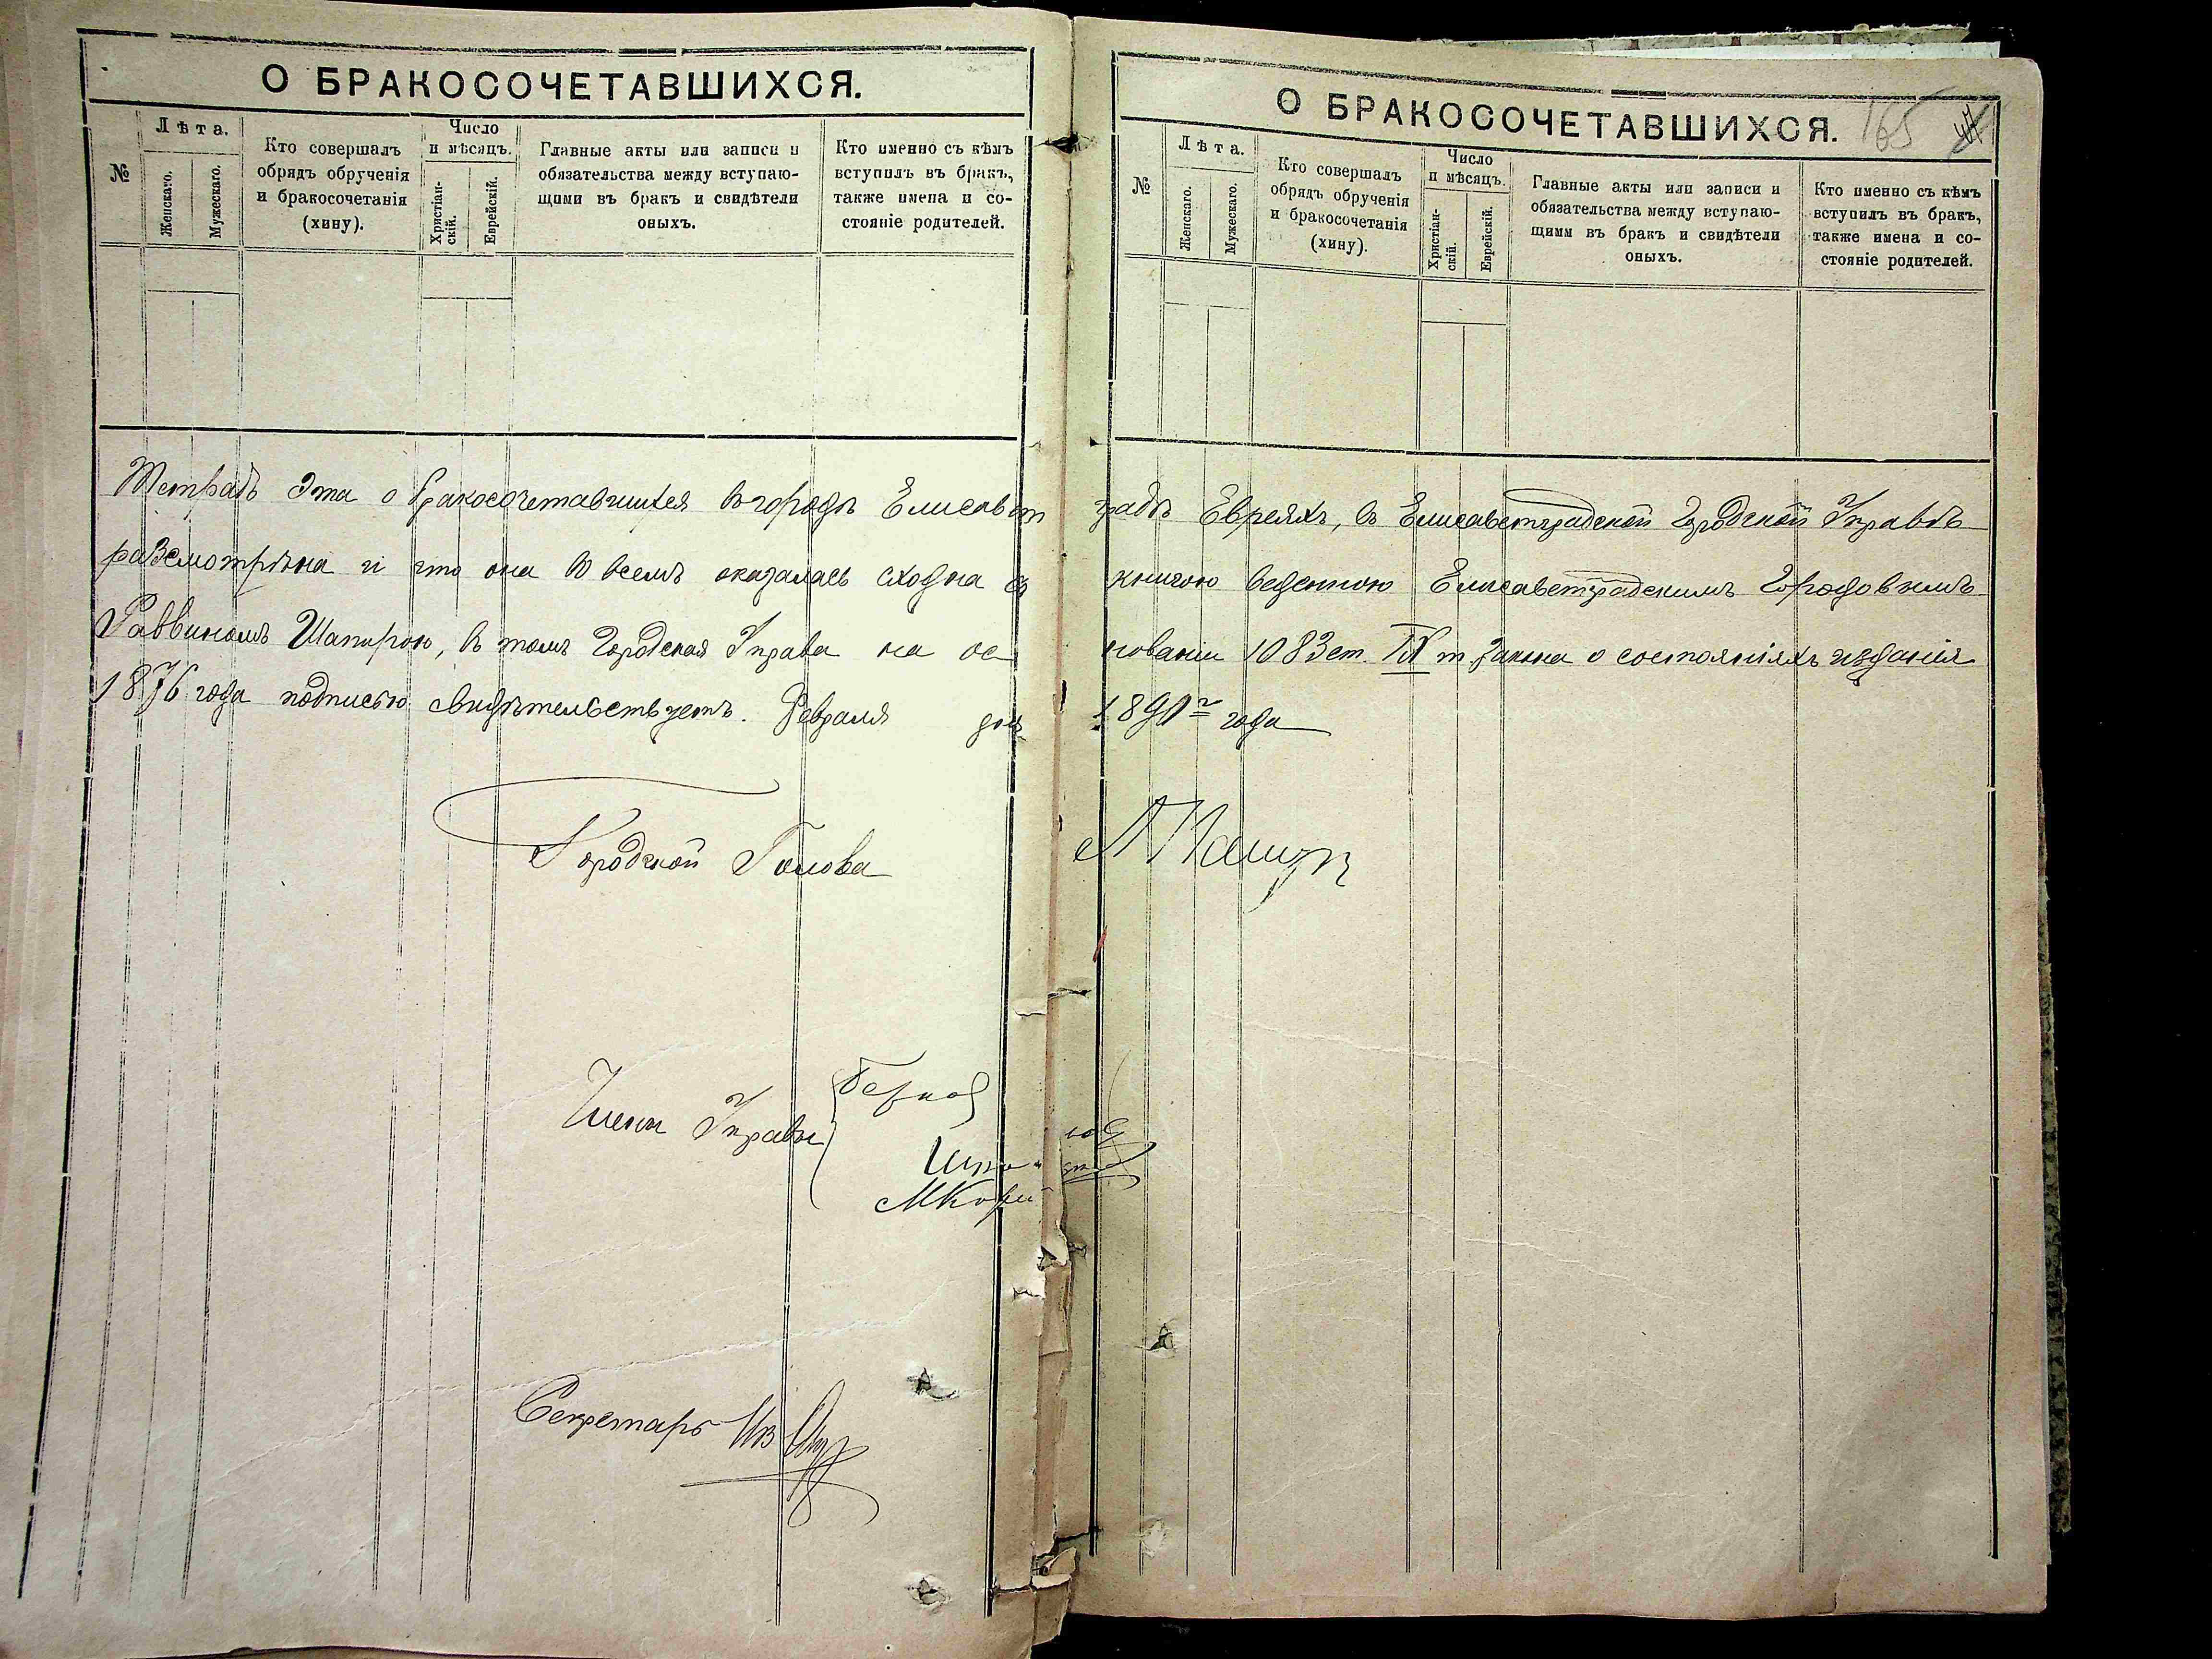 О БРАКОСОЧЕТАВШИХСЯ.
№
Лѣта.
Женскаго.
Мужескаго.
Кто совершалъ
обрядъ обрученія
и бракосочетанія
(хипу).
Число
и мѣсяцъ.
Христіан-
скій.
Еврейскій.
Главные акты или записи и
обязательства между вступаю-
щими въ бракъ и свидѣтели
оныхъ.
Кто именно съ кѣмъ
вступилъ въ бракъ,
также имена и со-
стояніе родителей.
О БРАКОСОЧЕТАВШИХСЯ.
165
№
Лѣта.
Женскаго.
Мужескаго.
Кто совершалъ
обрядъ обрученія
и бракосочетанія
(хипу).
Число
и мѣсяцъ.
Христіан-
скій.
Еврейскій.
Главные акты или записи и
обязательства между вступаю-
щими въ бракъ и свидѣтели
оныхъ.
Кто именно съ кѣмъ
вступилъ въ бракъ,
также имена и со-
стояніе родителей.
Тетрадь эта о бракосочетавшихся въ городѣ Елисавет градѣ Евреяхъ, въ Елисаветградской Городской Управѣ
разсмотрѣна и что она во всемъ оказалась сходна съ книгою веденною Елисаветградскимъ Городовымъ
Раввиномъ Шапирою, въ томъ Городская Управа на ос нованіи 1083 ст. IX т Закона о состояніяхъ изданія
1876 года подписью свидѣтельствуетъ. Февраля дня 1890 г года
Городской Голова
Члены Управы
Секретарь